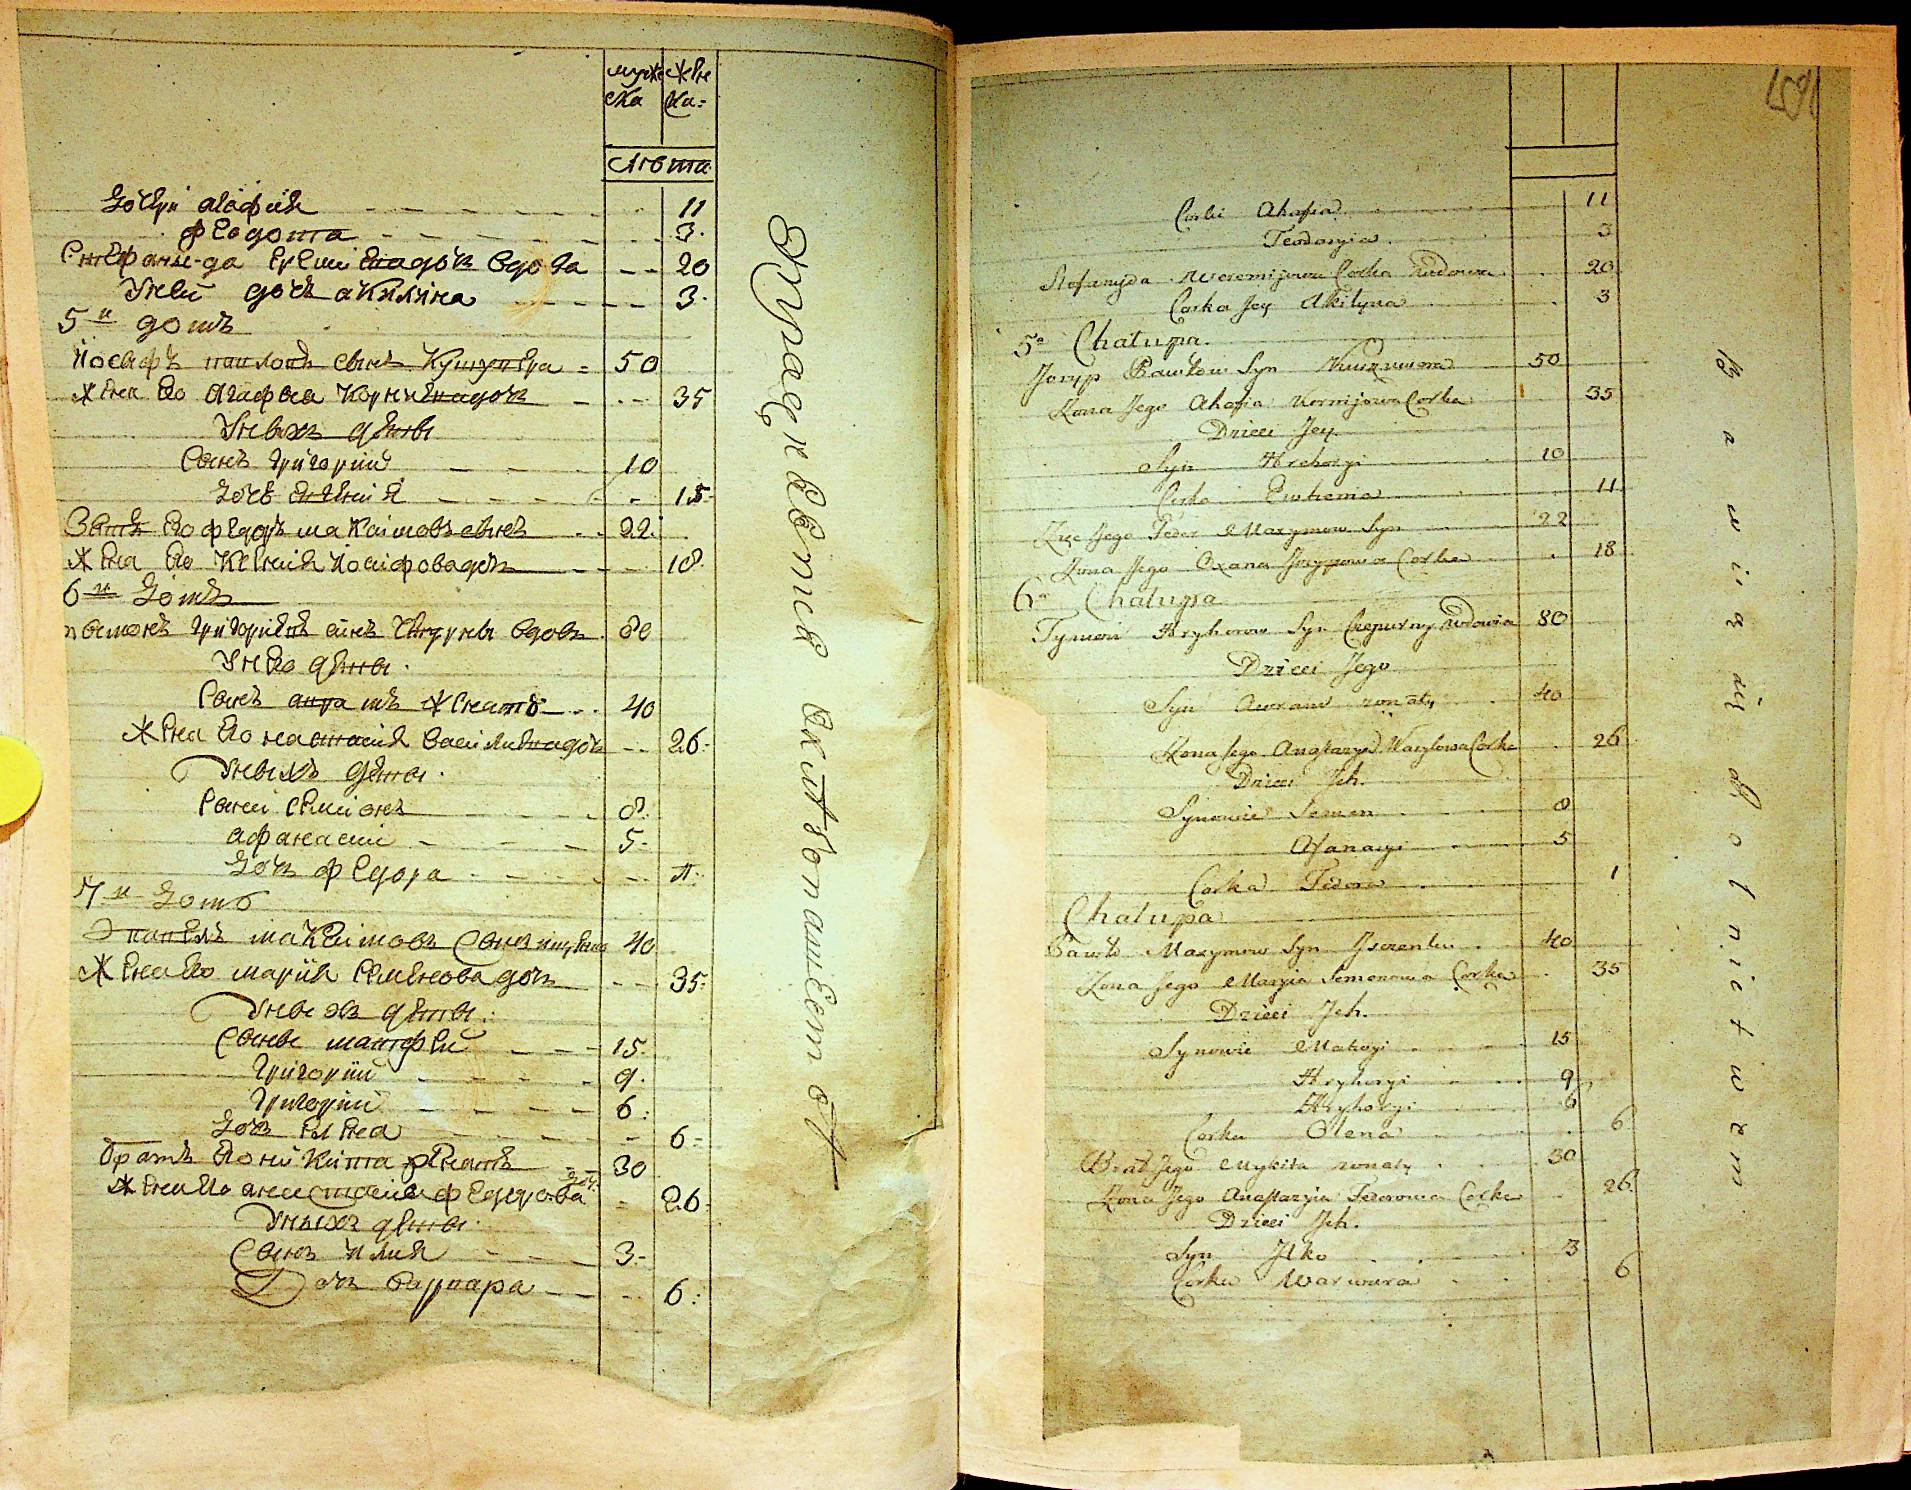 мужеска женска
лѣта
дочери агафия 11
феодота 3
Стефанида еремиева дочь вдова 20
У ней дочь акилина 3
5й домъ
Иосифъ павловъ сынъ 50
жена его Агафия корниева дочь 35
У нихъ дети
Сынъ григорий 10
дочь евгения 15
Зять его федоръ максимовъ сынъ 22
жена его Ксения Иосифова дочь 18
6й домъ
григориевъ сынъ вдовъ 80
У него дети
Сынъ аврамъ женатъ 40
жена его настасия василиева дочь 26
У нихъ дети
Сыны симионъ 8
афанасий 5
дочь федора 1
7й домъ
максимовъ сынъ 40
жена его мария семенова дочь 35
У нихъ дети
Сыны матфей 15
григорий 9
григорий 6
дочь елена 6
братъ его никита женатъ 30
жена его анастасия федорова дочь 26
У нихъ дети
Сынъ илия 3
Дочь варвара 6
Corki Ahafia 11
Teodosyia 3
Stefanyda Weremijowa Corka wdowa 20
Corka Jey Akilyna 3
5a Chatupa
Jozyp Pawłow Syn 50
Żona Jego Ahafia Kornijowa Corka 35
Dzieci Jey
Syn Hrehorji 10
Corka Ewhenia 11
Zięc Jego Fedor Maxymow Syn 22
Żona Jego Oxana Jozypowa Corka 18
6a Chatupa
Tymosz Hryhorow Syn Czepurny wdowiec 80
Dzieci Jego
Syn Awram zonaty 40
Żona Jego Anastazya Wasylowa Corka 26
Dzieci Jch.
Synowie Semen 8
Afanasyi 5
Corka Fedora 1
Chatupa
Pawło Maxymow Syn 40
Żona Jego Maryia Semenowa Corka 35
Dzieci Jch.
Synowie Matwyi 15
Hryhoryi 9
Hryhoryi 6
Corka Olena 6
Brat Jego Mykita zonaty 30
Żona Jego Anastazyia Fedorowa Corka 26
Dzieci Jch.
Syn Jlko 3
Corka Warwara 6